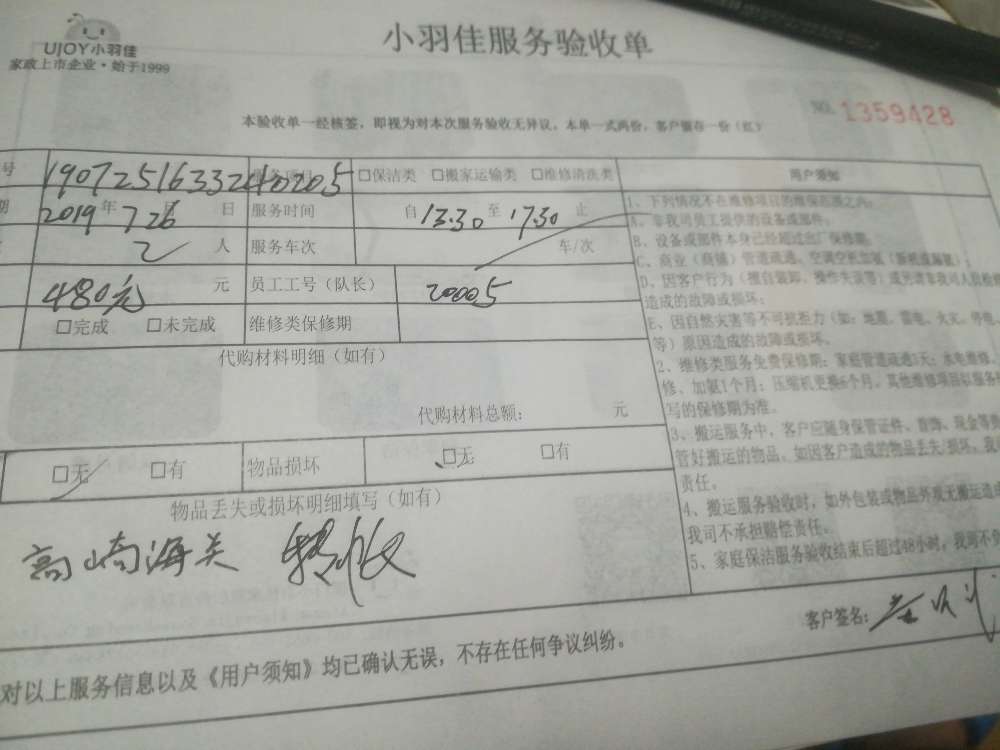 UJOY小羽佳
家政上市企业·始于1999
小羽佳服务验收单
NO. 1359428
本验收单一经核签，即视为对本次服务验收无异议。本单一式两份，客户留存一份（红）
号 1907251633240205 □保洁类 □搬家运输类 □维修清洗类
期 2019年 7月26日 服务时间 自 13:30 至 17:30 止
2 人 服务车次 车/次
480元 元 员工工号（队长） 20005
□完成 □未完成 维修类保修期
代购材料明细（如有）
代购材料总额： 元
□无 □有 物品损坏 □无 □有
物品丢失或损坏明细填写（如有）
高崎海关
用户须知
1、下列情况不在维修项目的维保范围之内：
A、非我司员工提供的设备或部件。
B、设备或部件本身已经超过出厂保修期。
C、商业（商铺）管道疏通、空调空机加氨
D、因客户行为（擅自装卸、操作失误等）或另请非我司人员检修
造成的故障或损坏；
E、因自然灾害等不可抗拒力（如：地震、雷电、火灾、停电、
等）原因造成的故障或损坏。
2、维修类服务免费保修期：家庭管道疏通3天；水电维修、
修、加氨1个月；压缩机更换6个月，其他维修项目以服务
写的保修期为准。
3、搬运服务中，客户应随身保管证件、首饰、现金等贵
管好搬运的物品。如因客户造成的物品丢失/损坏，我
责任。
4、搬运服务验收时，如外包装或物品外观无搬运造成
我司不承担赔偿责任。
5、家庭保洁服务验收结束后超过48小时，我司不
客户签名：
对以上服务信息以及《用户须知》均已确认无误，不存在任何争议纠纷。